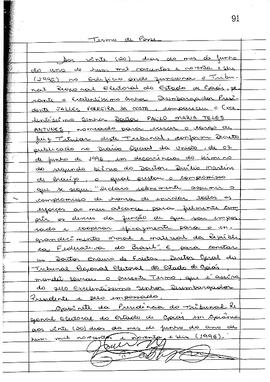 91
Termo de Posse
Aos vinte (20) dias do mês de junho
do ano de hum mil novecentos e noventa e seis
(1996), no edifício onde funciona o Tribu-
nal Regional Eleitoral do Estado de Goiás, pe-
rante o Excelentíssimo Senhor Desembargador Presi-
dente JALLES FERREIRA DA COSTA, compareceu o Ex-
celentíssimo Senhor Doutor PAULO MARIA TELES
ANTUNES, nomeado para exercer o cargo de
Juiz Titular deste Tribunal, conforme Decreto
publicado no Diário Oficial da União, de 07
de junho de 1996, em decorrência do término
do segundo biênio do Doutor
de Araújo, o qual prestou o compromisso
que se segue: "Declaro solenemente assumir o
compromisso de honra de envidar todos os
esforços ao meu alcance para cumprir
os deveres da função de que sou empos-
sado e cooperar para o en-
grandecimento moral e material da Repúbli-
ca Federativa do Brasil". E para constar,
eu Doutor de Freitas, Diretor Geral do
Tribunal Regional Eleitoral do Estado de Goiás
mandei lavrar o presente Termo que é assinado
pelo Excelentíssimo Senhor Desembargador
Presidente e pelo empossado.
Gabinete da Presidência do Tribunal Re-
gional Eleitoral do Estado de Goiás, em Goiânia
aos vinte (20) dias do mês de junho do ano de
hum mil novecentos e noventa e seis (1996).